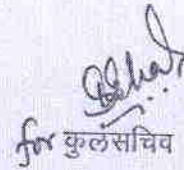 for कुलसचिव